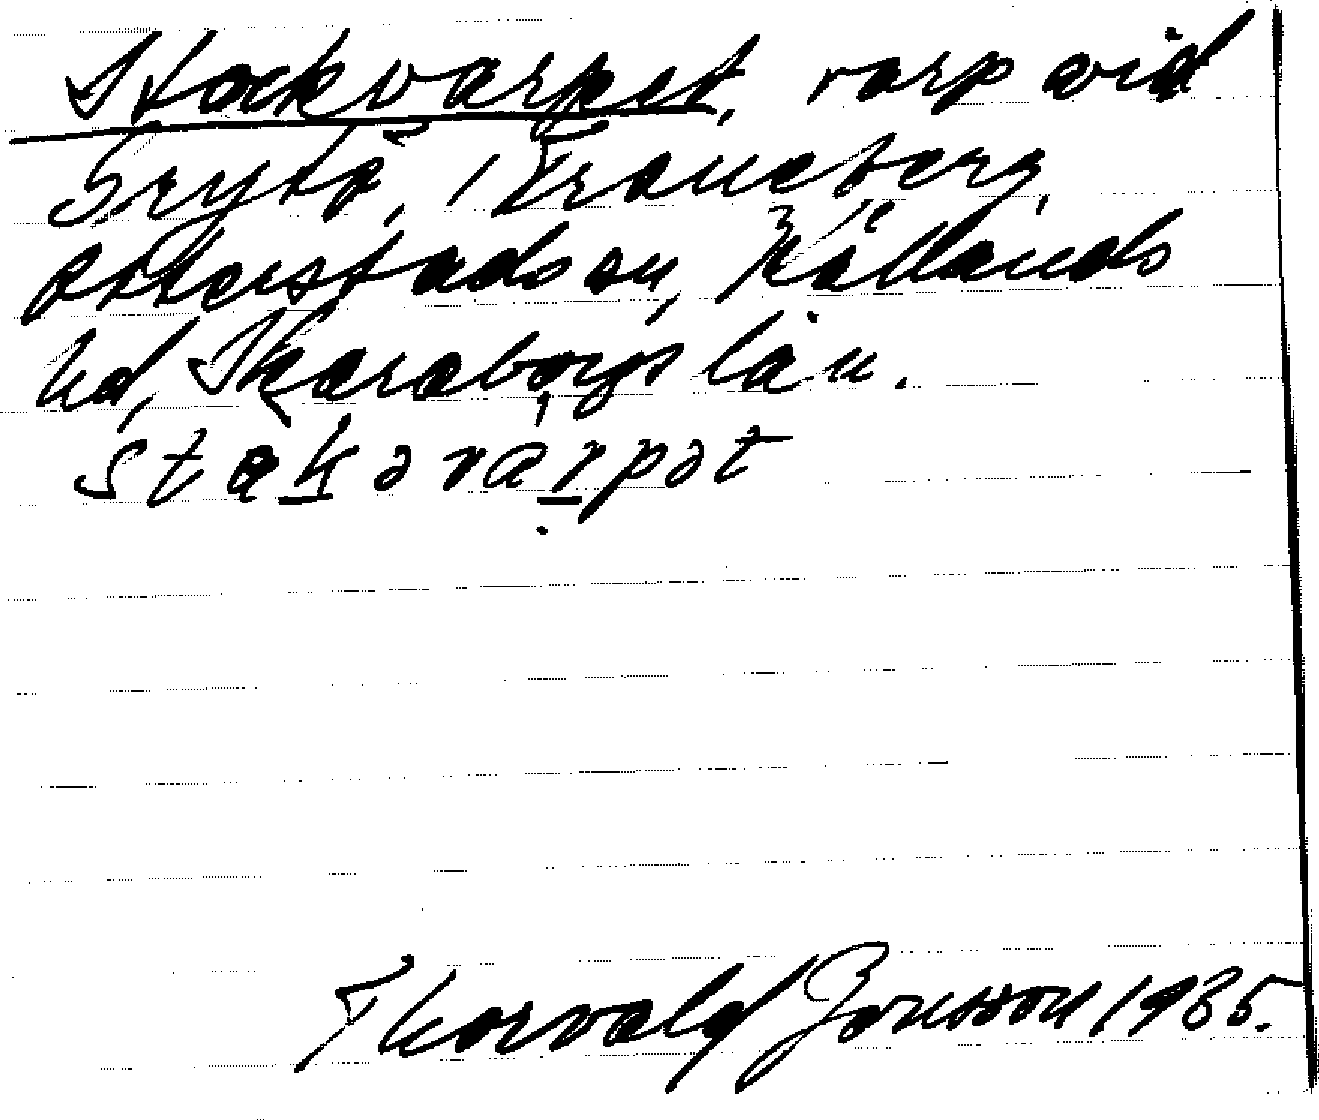 Stockvarpet, varp vid
Grytö, i Traneberg,
Otterstads sn, Kållands
hd, Skaraborgs län.
stakavarpət
Thorvald Jonsson 1935.